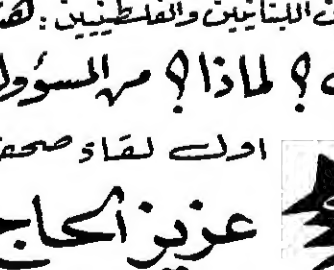 اللبنانيين والفلسطينيين : هذ
؟ لماذا ؟ من المسؤول
اول لقاء صحف
عزيز الحاج